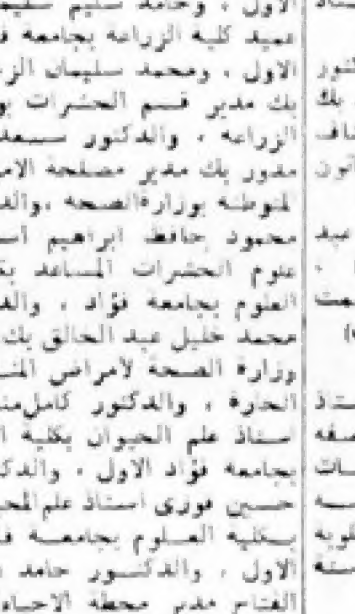 الاول ، وحامد سليم سليما
عميد كلية الزراعة بجامعة ف
الاول ، ومحمد سليمان الز
بك مدير قسم الحشرات بو
الزراعه ، والدكتور سعد
مدور بك مدير مصلحة الام
المتوطنة بوزارة الصحه ، والد
محمود حافظ ابراهيم أس
علوم الحشرات المساعد بك
العلوم بجامعة فؤاد ، والد
محمد خليل عبد الخالق بك
وزارة الصحة لأمراض المن
الحارة ، والدكتور كامل من
استاذ علم الحيوان بكلية ا
بجامعه فؤاد الاول ، والدك
حسين فوزى استاذ علم الح
بكلية العلوم بجامعة ف
الاول ، والدكتور حامد
الفتاح مدير محطة الاحيا